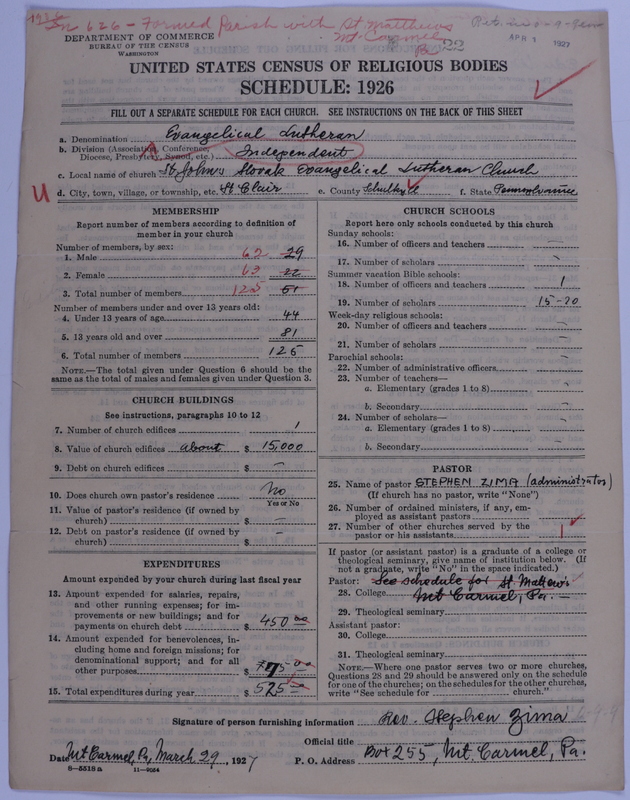 In 626 - Formed Parish with St Matthews
Mt. Carmel
DEPARTMENT OF COMMERCE
BUREAU OF THE CENSUS
WASHINGTON
APR 1927
UNITED STATES CENSUS OF RELIGIOUS BODIES
SCHEDULE: 1926
FILL OUT A SEPARATE SCHEDULE FOR EACH CHURCH. SEE INSTRUCTIONS ON THE BACK OF THIS SHEET
a. Denomination Evangelical Lutheran
b. Division (Association, Conference, Diocese, Presbytery, Synod, etc.) Independent
c. Local name of church St. John's Slovak Evangelical Lutheran Church
U d. City, town, village, or township, etc. St Clair e. County Schulkyll f. State Pennsylvania
MEMBERSHIP
Report number of members according to definition of
member in your church
Number of members, by sex:
1. Male 62 29
2. Female 63 22
3. Total number of members 125 51
Number of members under and over 13 years old:
4. Under 13 years of age 44
5. 13 years old and over 81
6. Total number of members 125
NOTE.—The total given under Question 6 should be
same as the total of males and females given under Question 3.
CHURCH BUILDINGS
See instructions, paragraphs 10 to 12
7. Number of church edifices 1
8. Value of church edifices about $ 15,000
9. Debt on church edifices $ —
10. Does church own pastor's residence No
Yes or No
11. Value of pastor's residence (if owned by
church) $ —
12. Debt on pastor's residence (if owned by
church) $ —
EXPENDITURES
Amount expended by your church during last fiscal year
13. Amount expended for salaries, repairs,
and other running expenses; for im-
provements or new buildings; and for
payments on church debt $ 450 00
14. Amount expended for benevolences, in-
cluding home and foreign missions; for
denominational support; and for all
other purposes $ 75 00
15. Total expenditures during year $ 525 00
CHURCH SCHOOLS
Report here only schools conducted by this church
Sunday schools:
16. Number of officers and teachers —
17. Number of scholars
Summer vacation Bible schools:
18. Number of officers and teachers 1
19. Number of scholars 15-20
Week-day religious schools:
20. Number of officers and teachers —
21. Number of scholars —
Parochial schools:
22. Number of administrative officers —
23. Number of teachers—
a. Elementary (grades 1 to 8) —
b. Secondary —
24. Number of scholars—
a. Elementary (grades 1 to 8) —
b. Secondary —
PASTOR
25. Name of pastor STEPHEN ZIMA (administrator)
(If church has no pastor, write "None")
26. Number of ordained ministers, if any, em-
ployed as assistant pastors —
27. Number of other churches served by the
pastor or his assistants 1
If pastor (or assistant pastor) is a graduate of a college or
theological seminary, give name of institution below. (If
not a graduate, write "No" in the space indicated.)
Pastor: See schedule for St. Matthew's
28. College Mt Carmel, Pa. —
29. Theological seminary
Assistant pastor:
30. College
31. Theological seminary
NOTE.—Where one pastor serves two or more churches,
Questions 28 and 29 should be answered only on the schedule
for one of the churches; on the schedules for the other churches,
write "See schedule for church."
Signature of person furnishing information Rev. Stephen Zima
Official title
Date Mt Carmel, Pa, March 29, 1927 P. O. Address Box 255, Mt. Carmel, Pa.
8—5518 a 11—9084